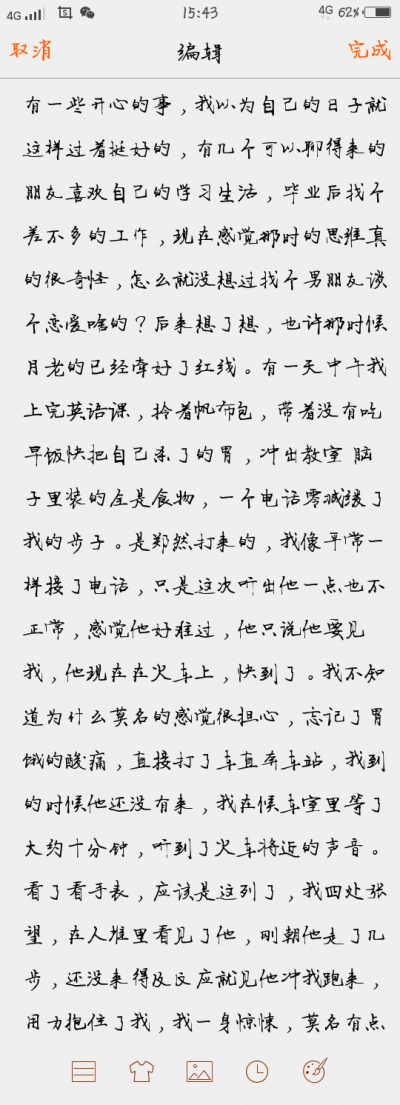 4G 15:43 4G 62%
取消 编辑 完成
有一些开心的事，我以为自己的日子就
这样过着挺好的，有几个可以聊得来的
朋友喜欢自己的学习生活，毕业后找个
差不多的工作，现在感觉那时的思维真
的很奇怪，怎么就没想过找个男朋友谈
个恋爱啥的？后来想了想，也许那时候
月老的已经牵好了红线。有一天中午我
上完英语课，拎着帆布包，带着没有吃
早饭快把自己杀了的胃，冲出教室 脑
子里装的全是食物，一个电话零减缓了
我的步子。是郑然打来的，我像平常一
样接了电话，只是这次听出他一点也不
正常，感觉他好难过，他只说他要见
我，他现在在火车上，快到了。我不知
道为什么莫名的感觉很担心，忘记了胃
饿的酸痛，直接打了车直奔车站，我到
的时候他还没有来，我在候车室里等了
大约十分钟，听到了火车将近的声音。
看了看手表，应该是这列了，我四处张
望，在人堆里看见了他，刚朝他走了几
步，还没来得及反应就见他冲我跑来，
用力抱住了我，我一身惊悚，莫名有点